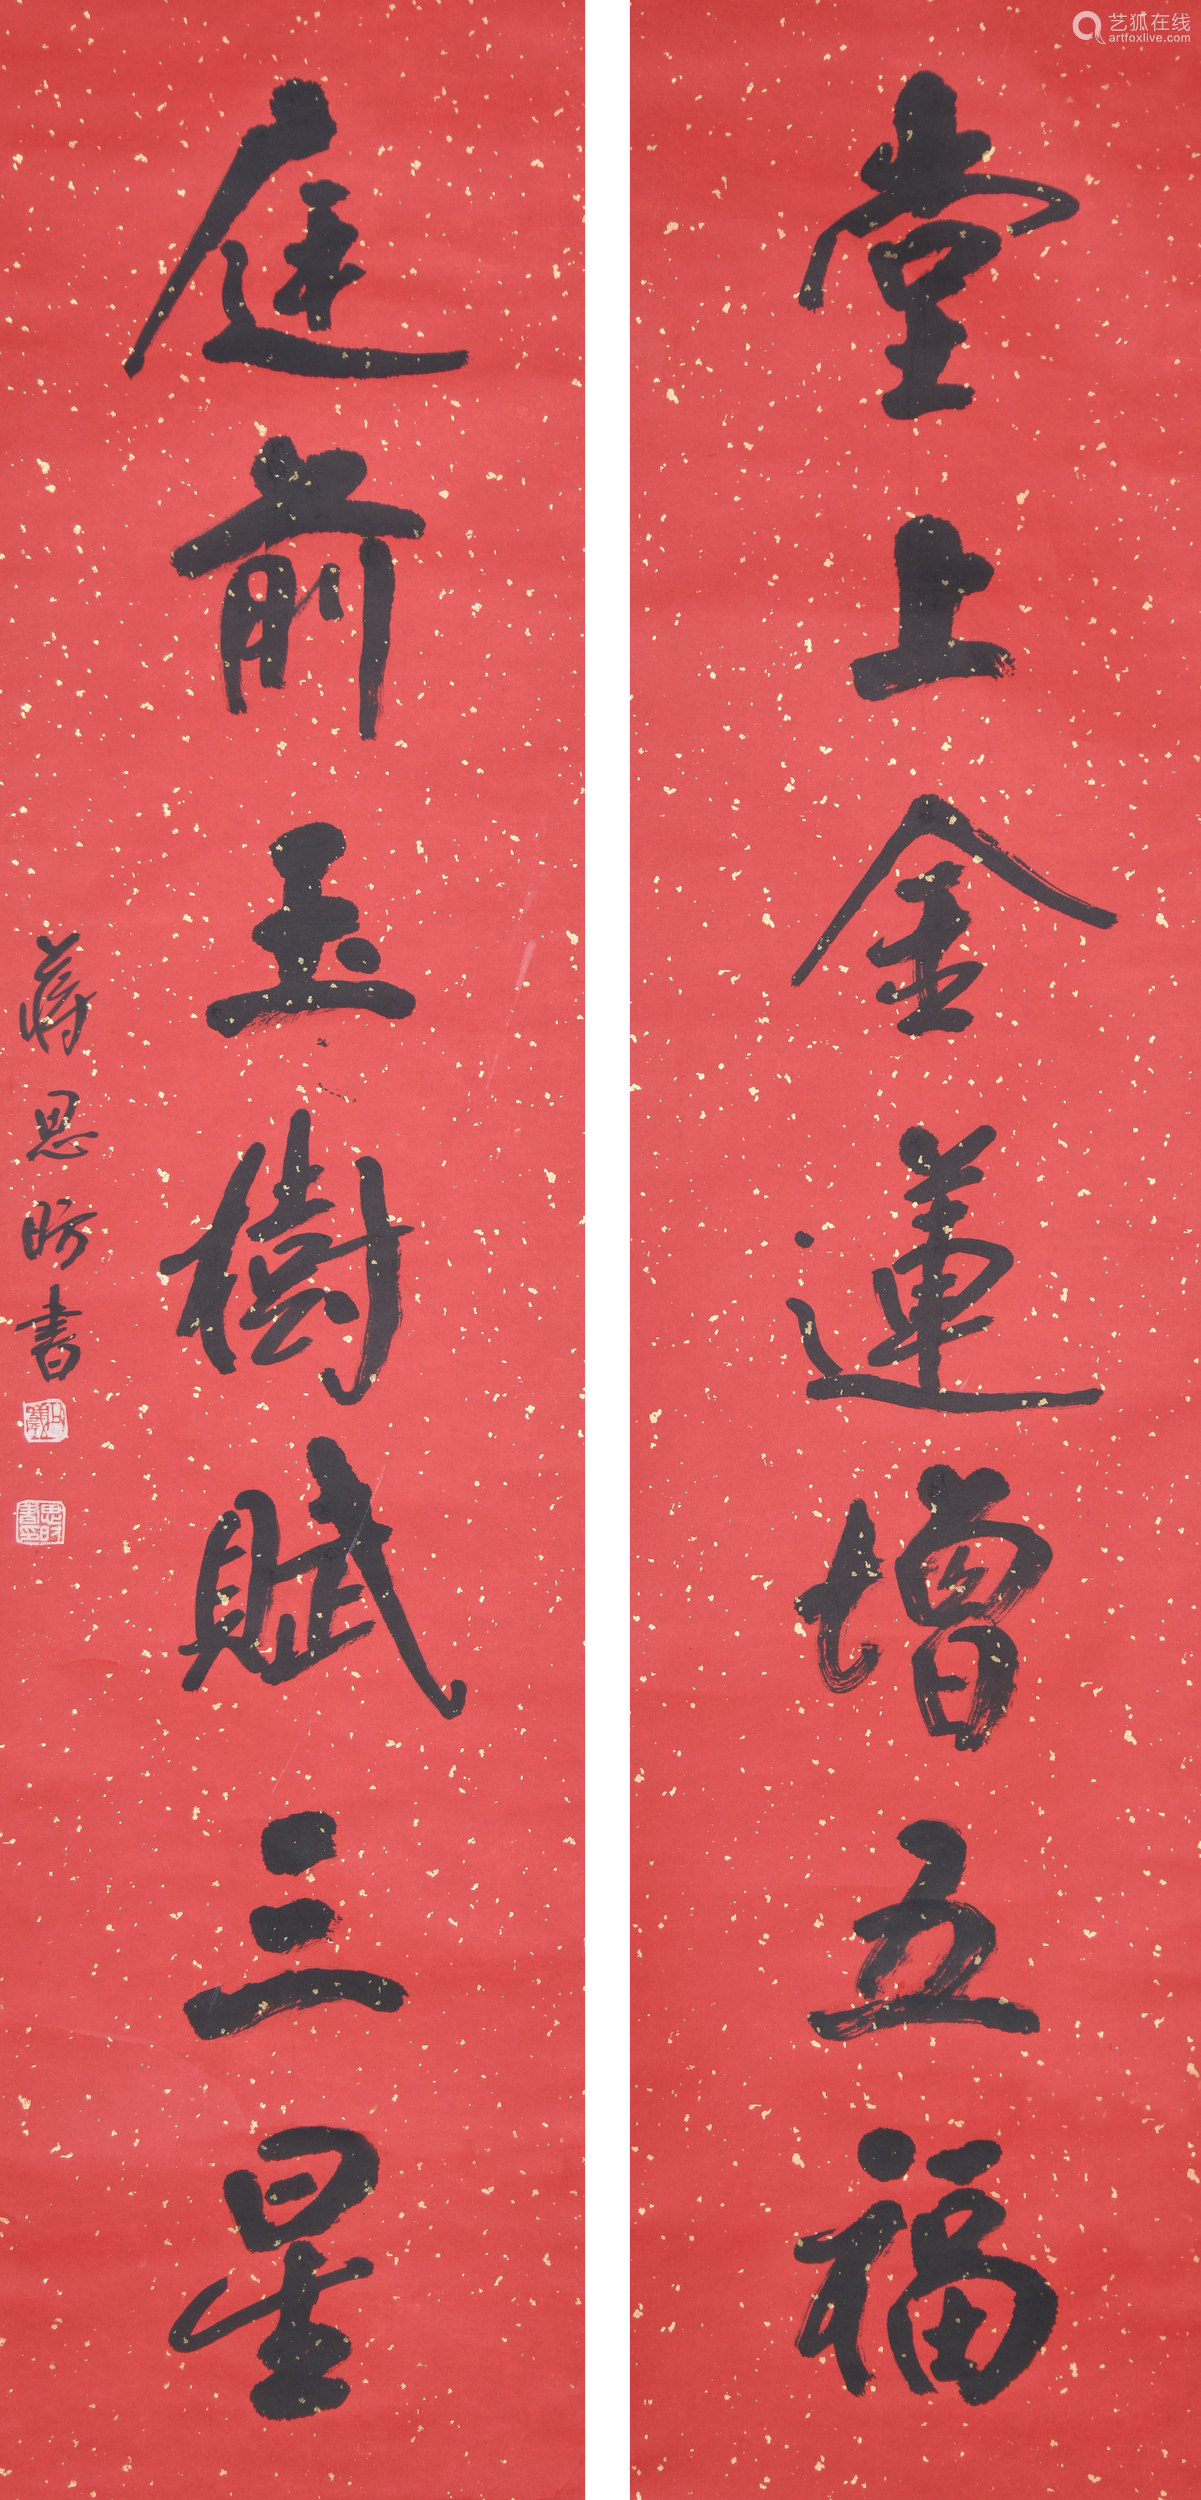 艺狐在线
artfoxlive.com
堂上金蓮增五福
庭前玉樹賦三星
蔣思昉書